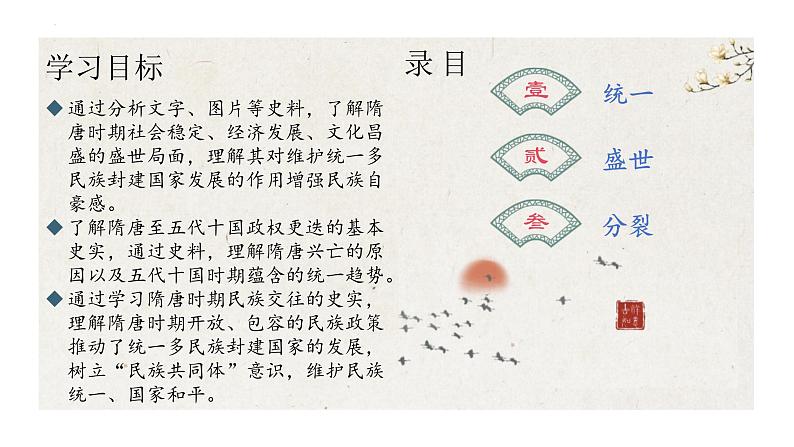 学习目标
通过分析文字、图片等史料，了解隋
唐时期社会稳定、经济发展、文化昌
盛的盛世局面，理解其对维护统一多
民族封建国家发展的作用增强民族自
豪感。
了解隋唐至五代十国政权更迭的基本
史实，通过史料，理解隋唐兴亡的原
因以及五代十国时期蕴含的统一趋势。
通过学习隋唐时期民族交往的史实，
理解隋唐时期开放、包容的民族政策
推动了统一多民族封建国家的发展，
树立“民族共同体”意识，维护民族
统一、国家和平。
录目
壹 统一
贰 盛世
叁 分裂